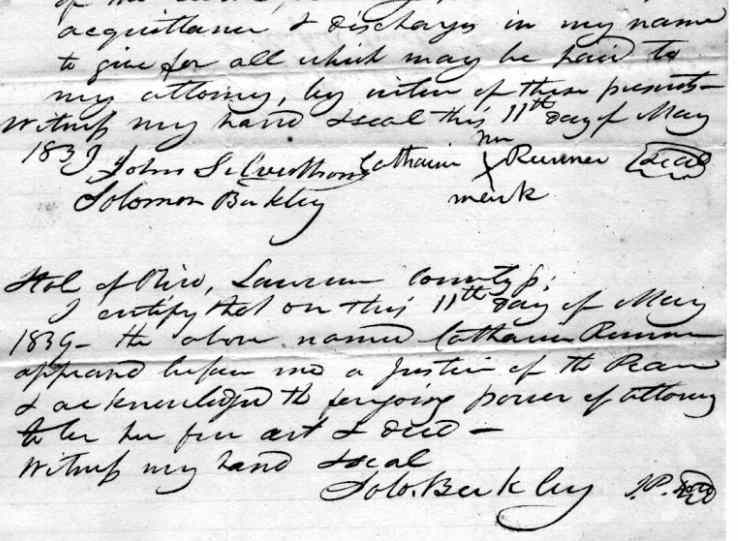 acquittance & discharges in my name
to give for all which may be paid to
my attorney, by virtue of these presents
Witness my hand & seal this 11th day of May
1839 John Silverthorn Catharine her X Runner Seal
Solomon Beckley mark
State of Ohio, Lawrence County ss.
I certify that on this 11th day of May
1839 - the above named Catharine Runner
appeared before me a Justice of the Peace
& acknowledged the foregoing power of attorney
to be her free act & deed -
Witness my hand & seal
Solo. Beckley J.P. Seal